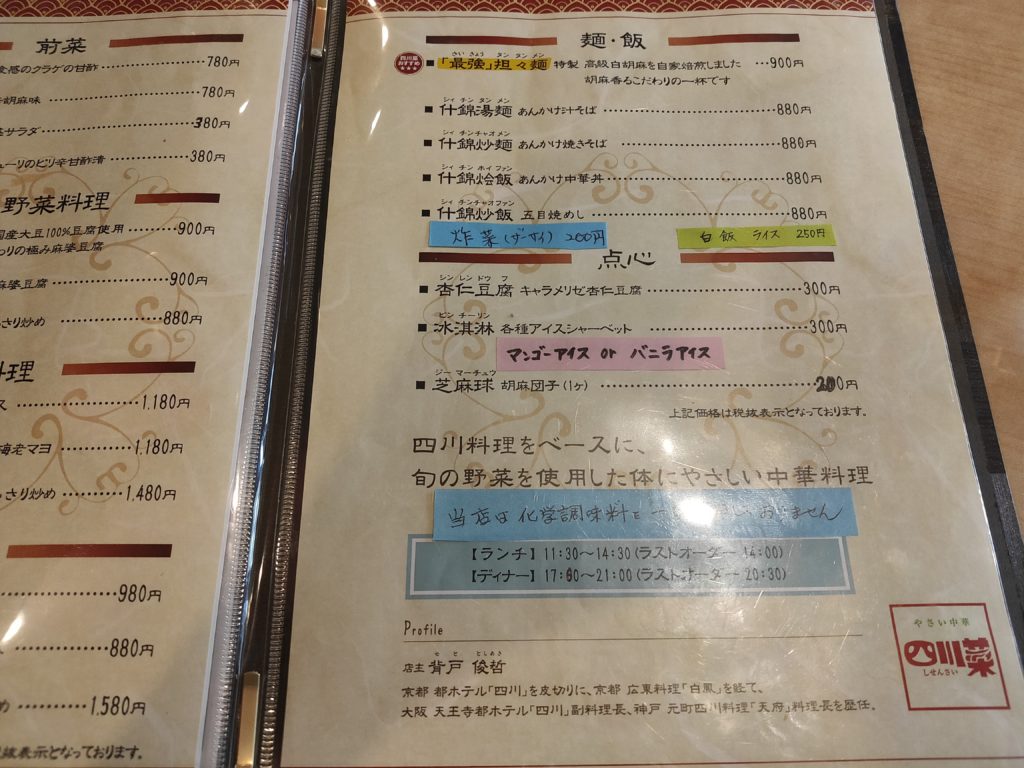 前菜
食感のクラゲの甘酢 780円
胡麻味 780円
サラダ 380円
ューリのピリ辛甘酢漬 380円
野菜料理
国産大豆100%豆腐使用 900円
わりの極み麻婆豆腐
麻婆豆腐 900円
さり炒め 880円
料理
ス 1.180円
海老マヨ 1.180円
さり炒め 1,480円
980円
880円
め 1.580円
税抜表示となっております。
麺・飯
四川菜おすすめ ★★★
さいきょう タンタンメン
■「最強」担々麺 特製 高級白胡麻を自家焙煎しました …900円
胡麻香るこだわりの一杯です
シィ チン タン メン
■什錦湯麺 あんかけ汁そば 880円
シィ チンチャオメン
■什錦炒麺 あんかけ焼きそば 880円
シィ チン ホイ ファン
■什錦烩飯 あんかけ中華丼 880円
シィ チンチャオファン
■什錦炒飯 五目焼めし 880円
炸菜(ザーサイ) 200円
白飯 ライス 250円
点心
シン レン ドウ フ
■杏仁豆腐 キャラメリゼ杏仁豆腐 300円
ビン チーリン
■冰淇淋 各種アイスシャーベット 300円
マンゴーアイス or バニラアイス
ジー マーチュウ
■芝麻球 胡麻団子(1ヶ) 200円
上記価格は税抜表示となっております。
四川料理をベースに、
旬の野菜を使用した体にやさしい中華料理
当店は化学調味料を一 おりません
【ランチ】11:30〜14:30(ラストオーダー 14:00)
【ディナー】17:60〜21:00(ラストオーダー 20:30)
Profile
せ と としのり
店主 背戸 俊哲
京都 都ホテル「四川」を皮切りに、京都 広東料理「白鳳」を経て、
大阪 天王寺都ホテル「四川」副料理長、神戸 元町四川料理「天府」料理長を歴任。
やさい中華
四川菜
しせんさい